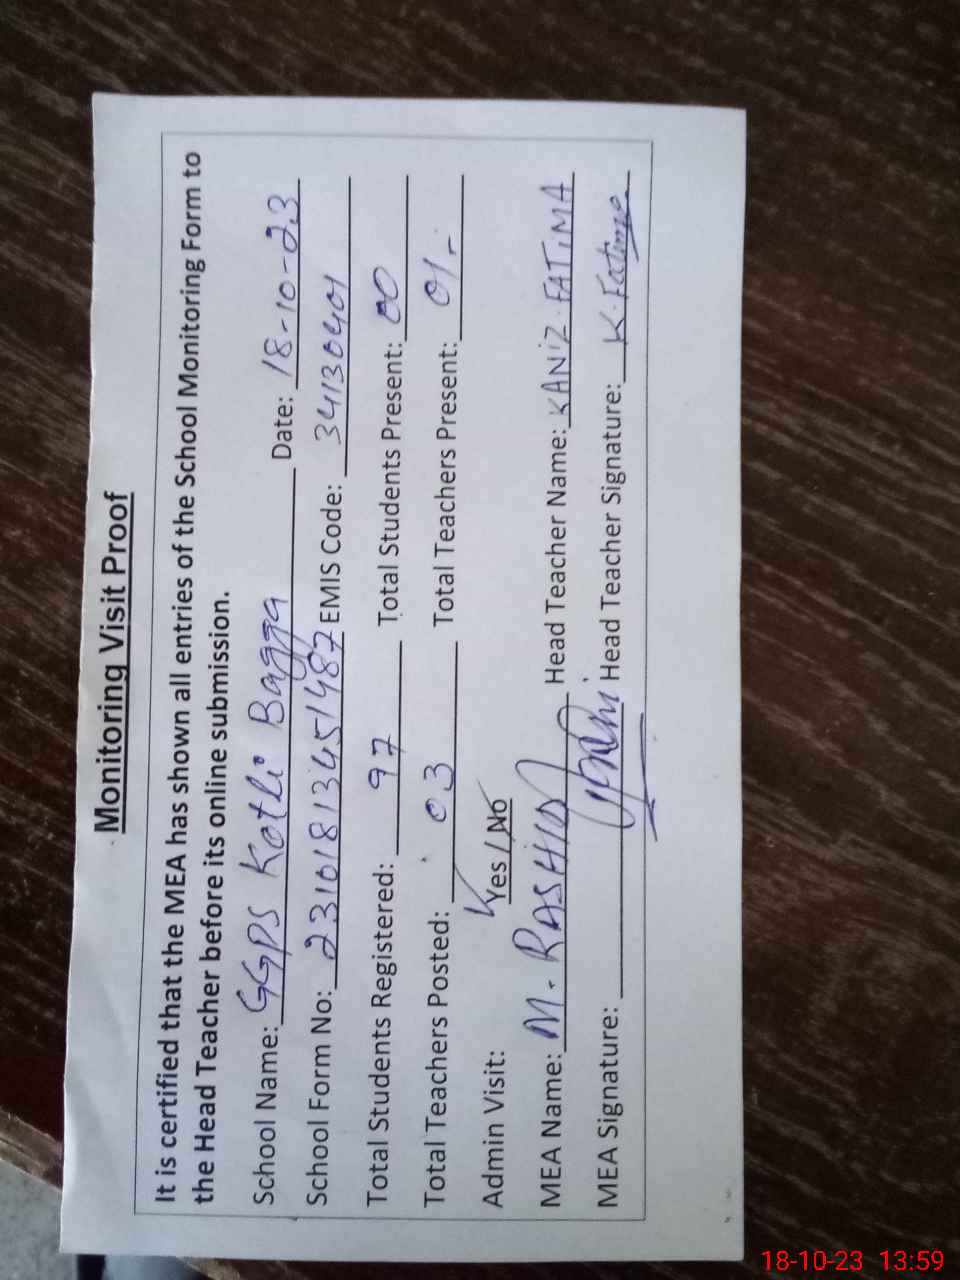 Monitoring Visit Proof
It is certified that the MEA has shown all entries of the School Monitoring Form to
the Head Teacher before its online submission.
School Name: GGPS Kotli Bagga Date: 18-10-23
School Form No: 23101813451487 EMIS Code: 34130401
Total Students Registered: 97 Total Students Present: 00
Total Teachers Posted: 03 Total Teachers Present: 01-
Admin Visit: Yes / No
MEA Name: M. RASHID Head Teacher Name: KANIZ FATIMA
MEA Signature: Head Teacher Signature: K. Fatima
18-10-23 13:59